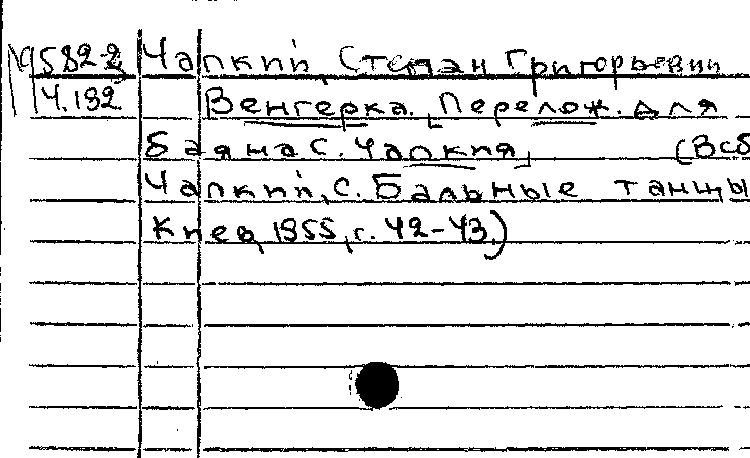 М9582-2 Чапкий, Степан Григорьевич
Ч.192 Венгерка. [Перелож. для
баяна С. Чапкия] (В сб
Чапкий, С. Бальные танцы
Киев, 1955, с. 42-43.)